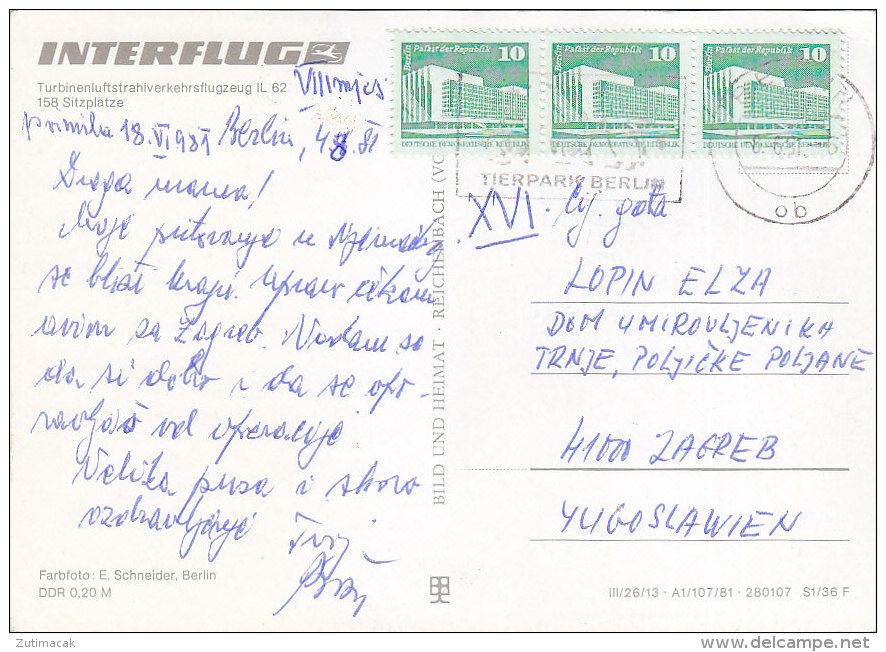 INTERFLUG
Turbinenluftstrahlverkehrsflugzeug IL 62
158 Sitzplätze
primila 18.VI 1981
Berlin, 4.8.81
Draga mama!
Moje putovanje u Njemačkoj
se bliži kraju. Upravo čekam
avion za Zagreb. Nadam se
da si dobro i da se opo-
ravljaš od operacije
Velika pusa i skoro
ozdravljenje
Tvoj
Farbfoto: E. Schneider, Berlin
DDR 0,20 M
BILD UND HEIMAT · REICHENBACH (VO
Berlin Palast der Republik 10
DEUTSCHE DEMOKRATISCHE REPUBLIK
Berlin Palast der Republik 10
DEUTSCHE DEMOKRATISCHE REPUBLIK
Berlin Palast der Republik 10
DEUTSCHE DEMOKRATISCHE REPUBLIK
TIERPARK BERLIN
ob
XVI.
LOPIN ELZA
DOM UMIROVLJENIKA
TRNJE, POLJIČKE POLJANE
41000 ZAGREB
YUGOSLAWIEN
III/26/13 · A1/107/81 · 280107 S1/36 F
Zutimacak
www.delcampe.net